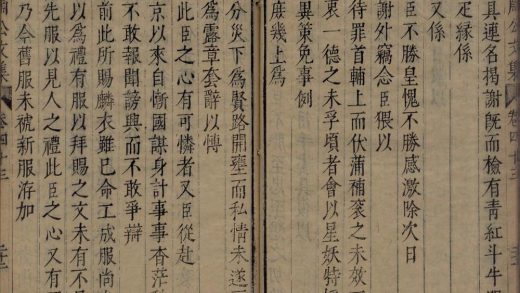 具連名揭謝旣而檢有青紅斗牛
疋緣係
又係
臣不勝皇愧不勝感激除次日
謝外竊念臣猥以
待罪首輔上而伏蒲補衮之未效
衷一德之未孚頃者會以星妖特
異策免事例
庶幾上爲
分災下爲賢路開壅而私情未遂
爲露章套辭以慱
此臣之心有可憐者又臣從赴
京以來自慚國謀身計事事杳茫
不敢報聞謗興而不敢爭辯
前此所賜麟衣雖已命工成服尚
以爲禮有服以拜賜之文未有不
先服以見人之禮此臣之心又有
乃今舊服未褫新服洊加
公文集
卷四十三